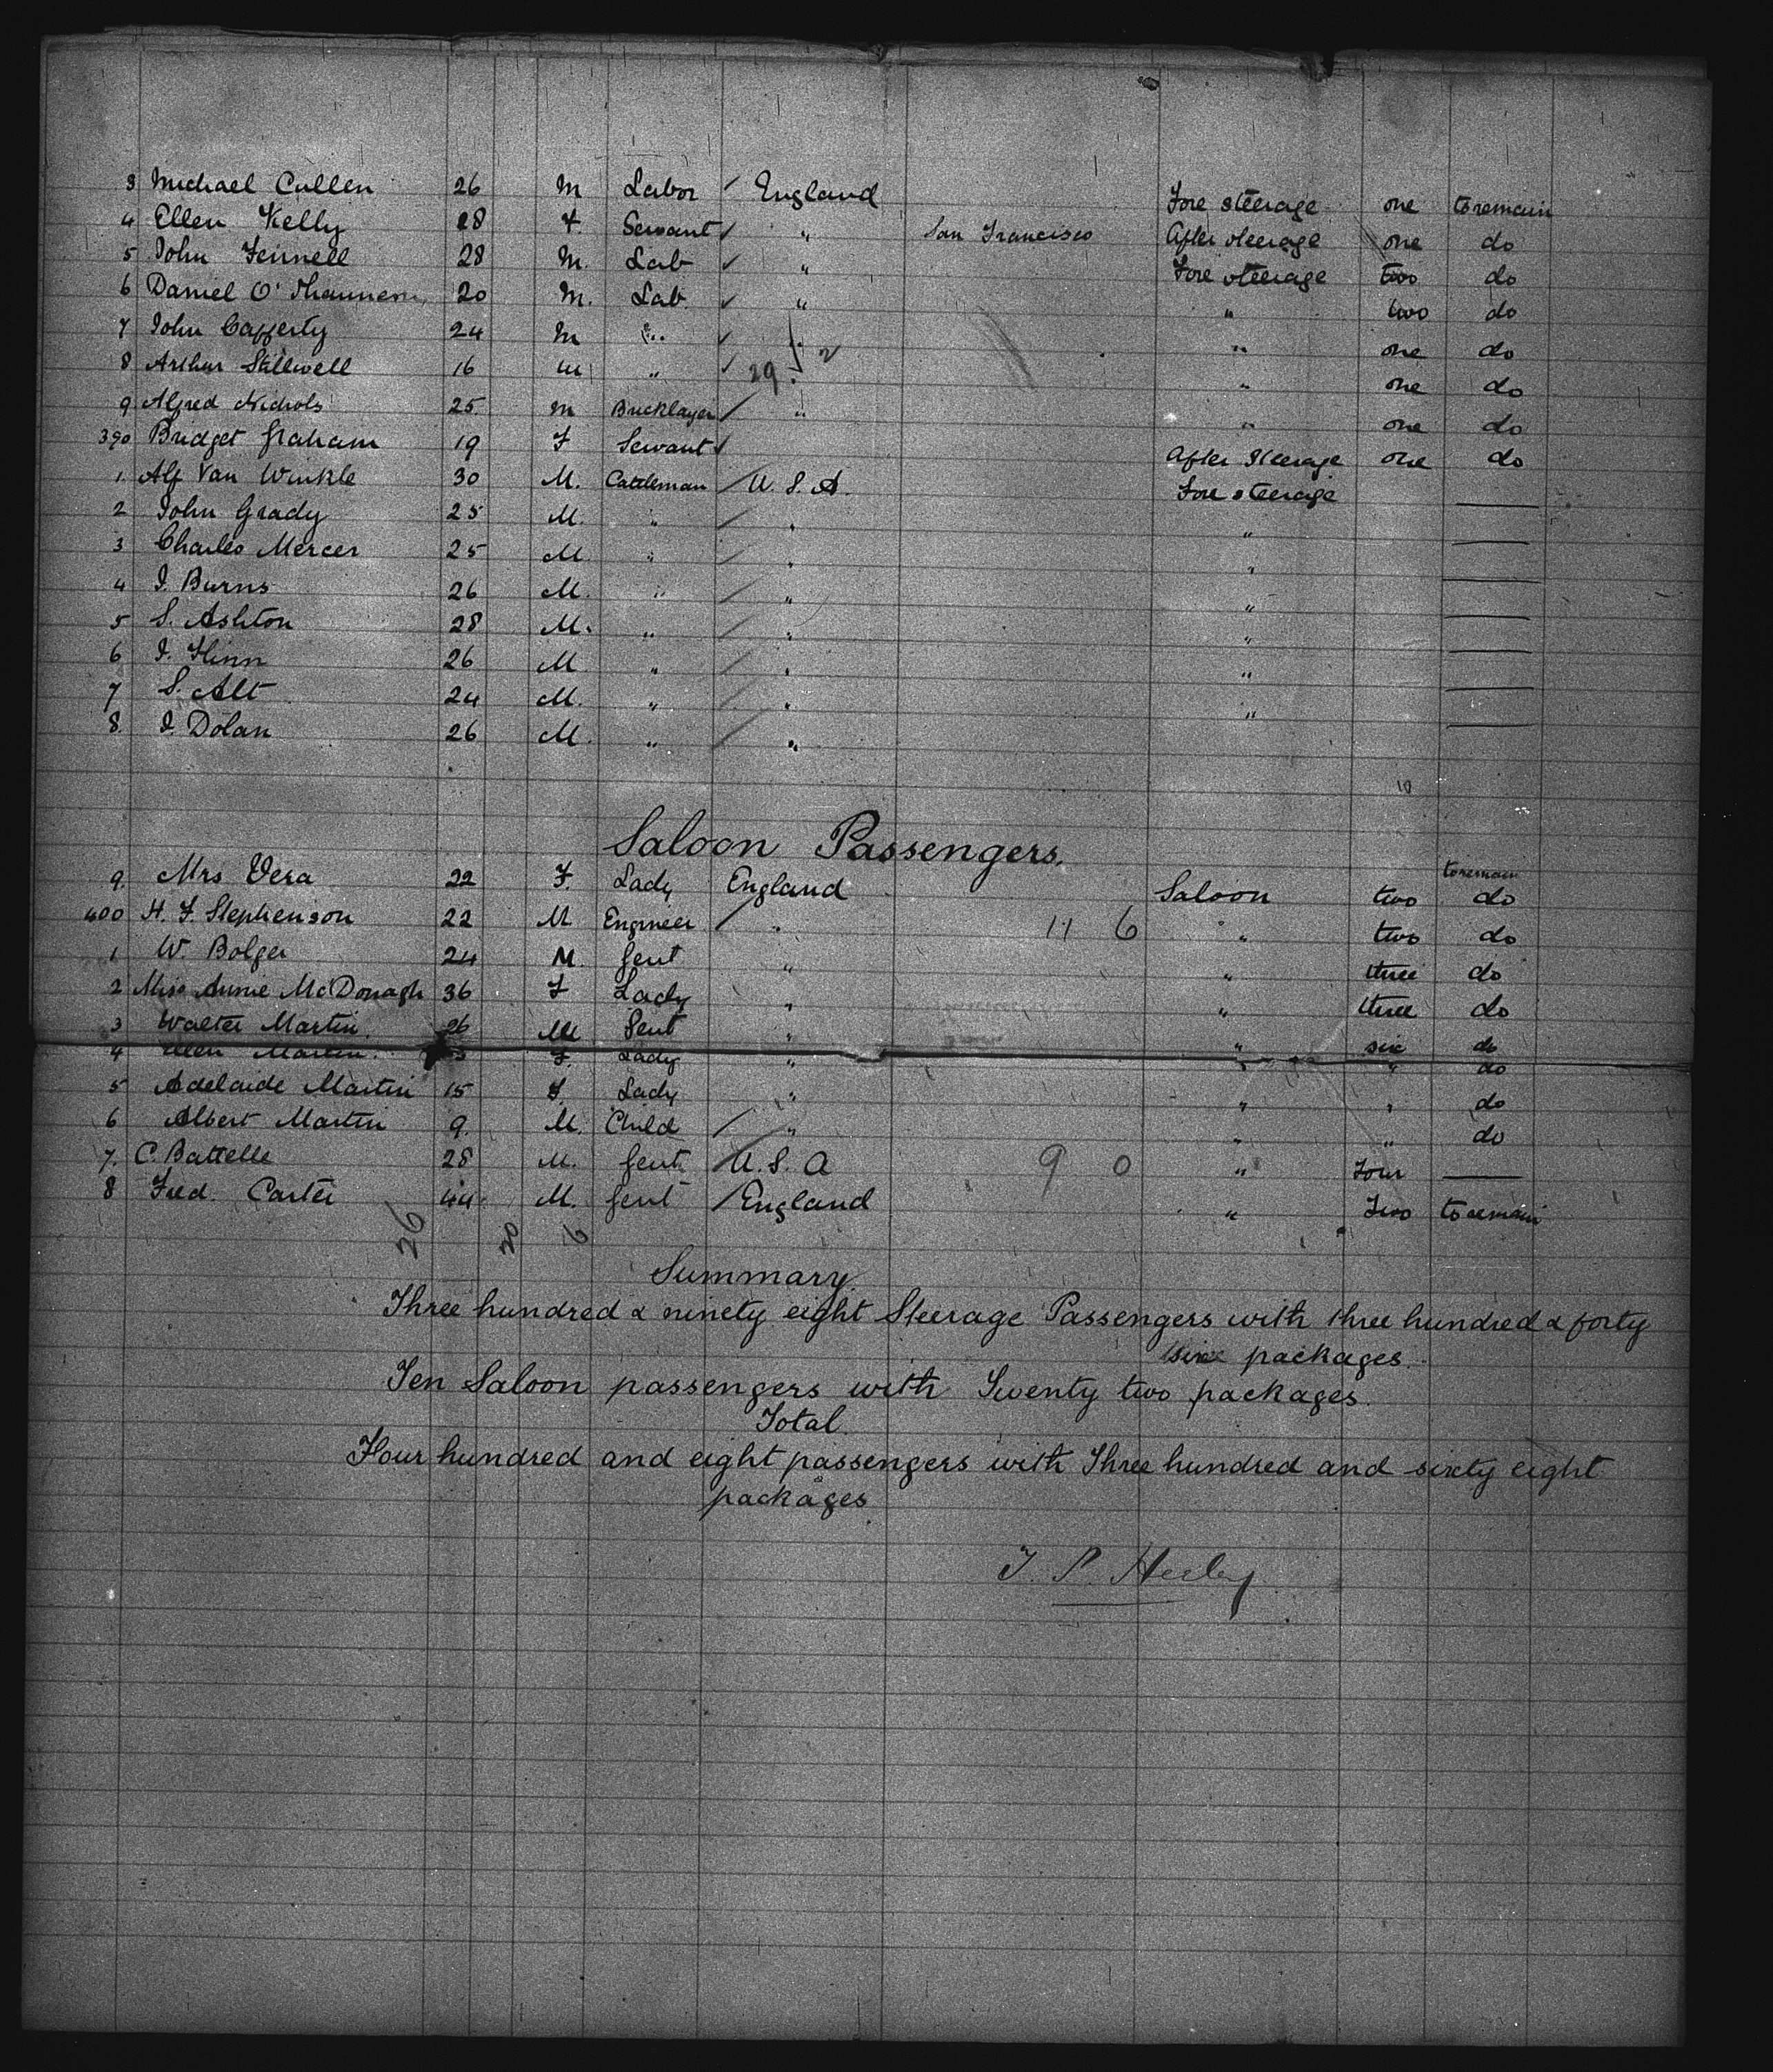 3 Michael Cullen 26 M Labor ✓ England Fore steerage one to remain
4 Ellen Kelly 28 F Servant ✓ " San Francisco After steerage one do
5 John Fennell 28 M. Lab ✓ " Fore steerage two do
6 Daniel 20 M. Lab ✓ " " two do
7 John Cafferty 24 M " ✓ " one do
8 Arthur Stillwell 16 M " ✓ 29 2 " one do
9 Alfred Nichols 25 M Bricklayer / " " one do
390 Bridget Graham 19 F Servant ✓ After Steerage one do
1. Alf Van Winkle 30 M. Cattleman / U.S.A. Fore steerage
2 John Grady 25 M. " / " " —
3 Charles Mercer 25 M " / " " —
4 J. Burns 26 M. " / " " —
5 S. Ashton 28 M. " / " " —
6 J. Flinn 26 M " / " " —
7 S. Alt 24 M. " / " " —
8. J. Dolan 26 M. " / " —
10
Saloon Passengers.
to remain
9. Mrs Vera 22 F. Lady England Saloon two do
400 H. F. Stephenson 22 M Engineer / " 11 6 " two do
1 W. Bolger 24 M. Gent " " three do
2 Miss Annie McDonagh 36 F Lady " " three do
3 Walter Martin 26 M Gent " " six do
4 Ellen Martin. F. Lady " " " do
5 Adelaide Martin 15 F. Lady " " " do
6 Albert Martin 9. M. Child / " " " do
7. C. Battelle 28 M. Gent / U.S.A 9 0 " Four —
8 Fred. Carter 44 M. Gent / England " Two to remain
26 20 6
Summary
Three hundred & ninety eight Steerage Passengers with three hundred & forty
six packages.
Ten Saloon passengers with Twenty two packages.
Total.
Four hundred and eight passengers with Three hundred and sixty eight
packages